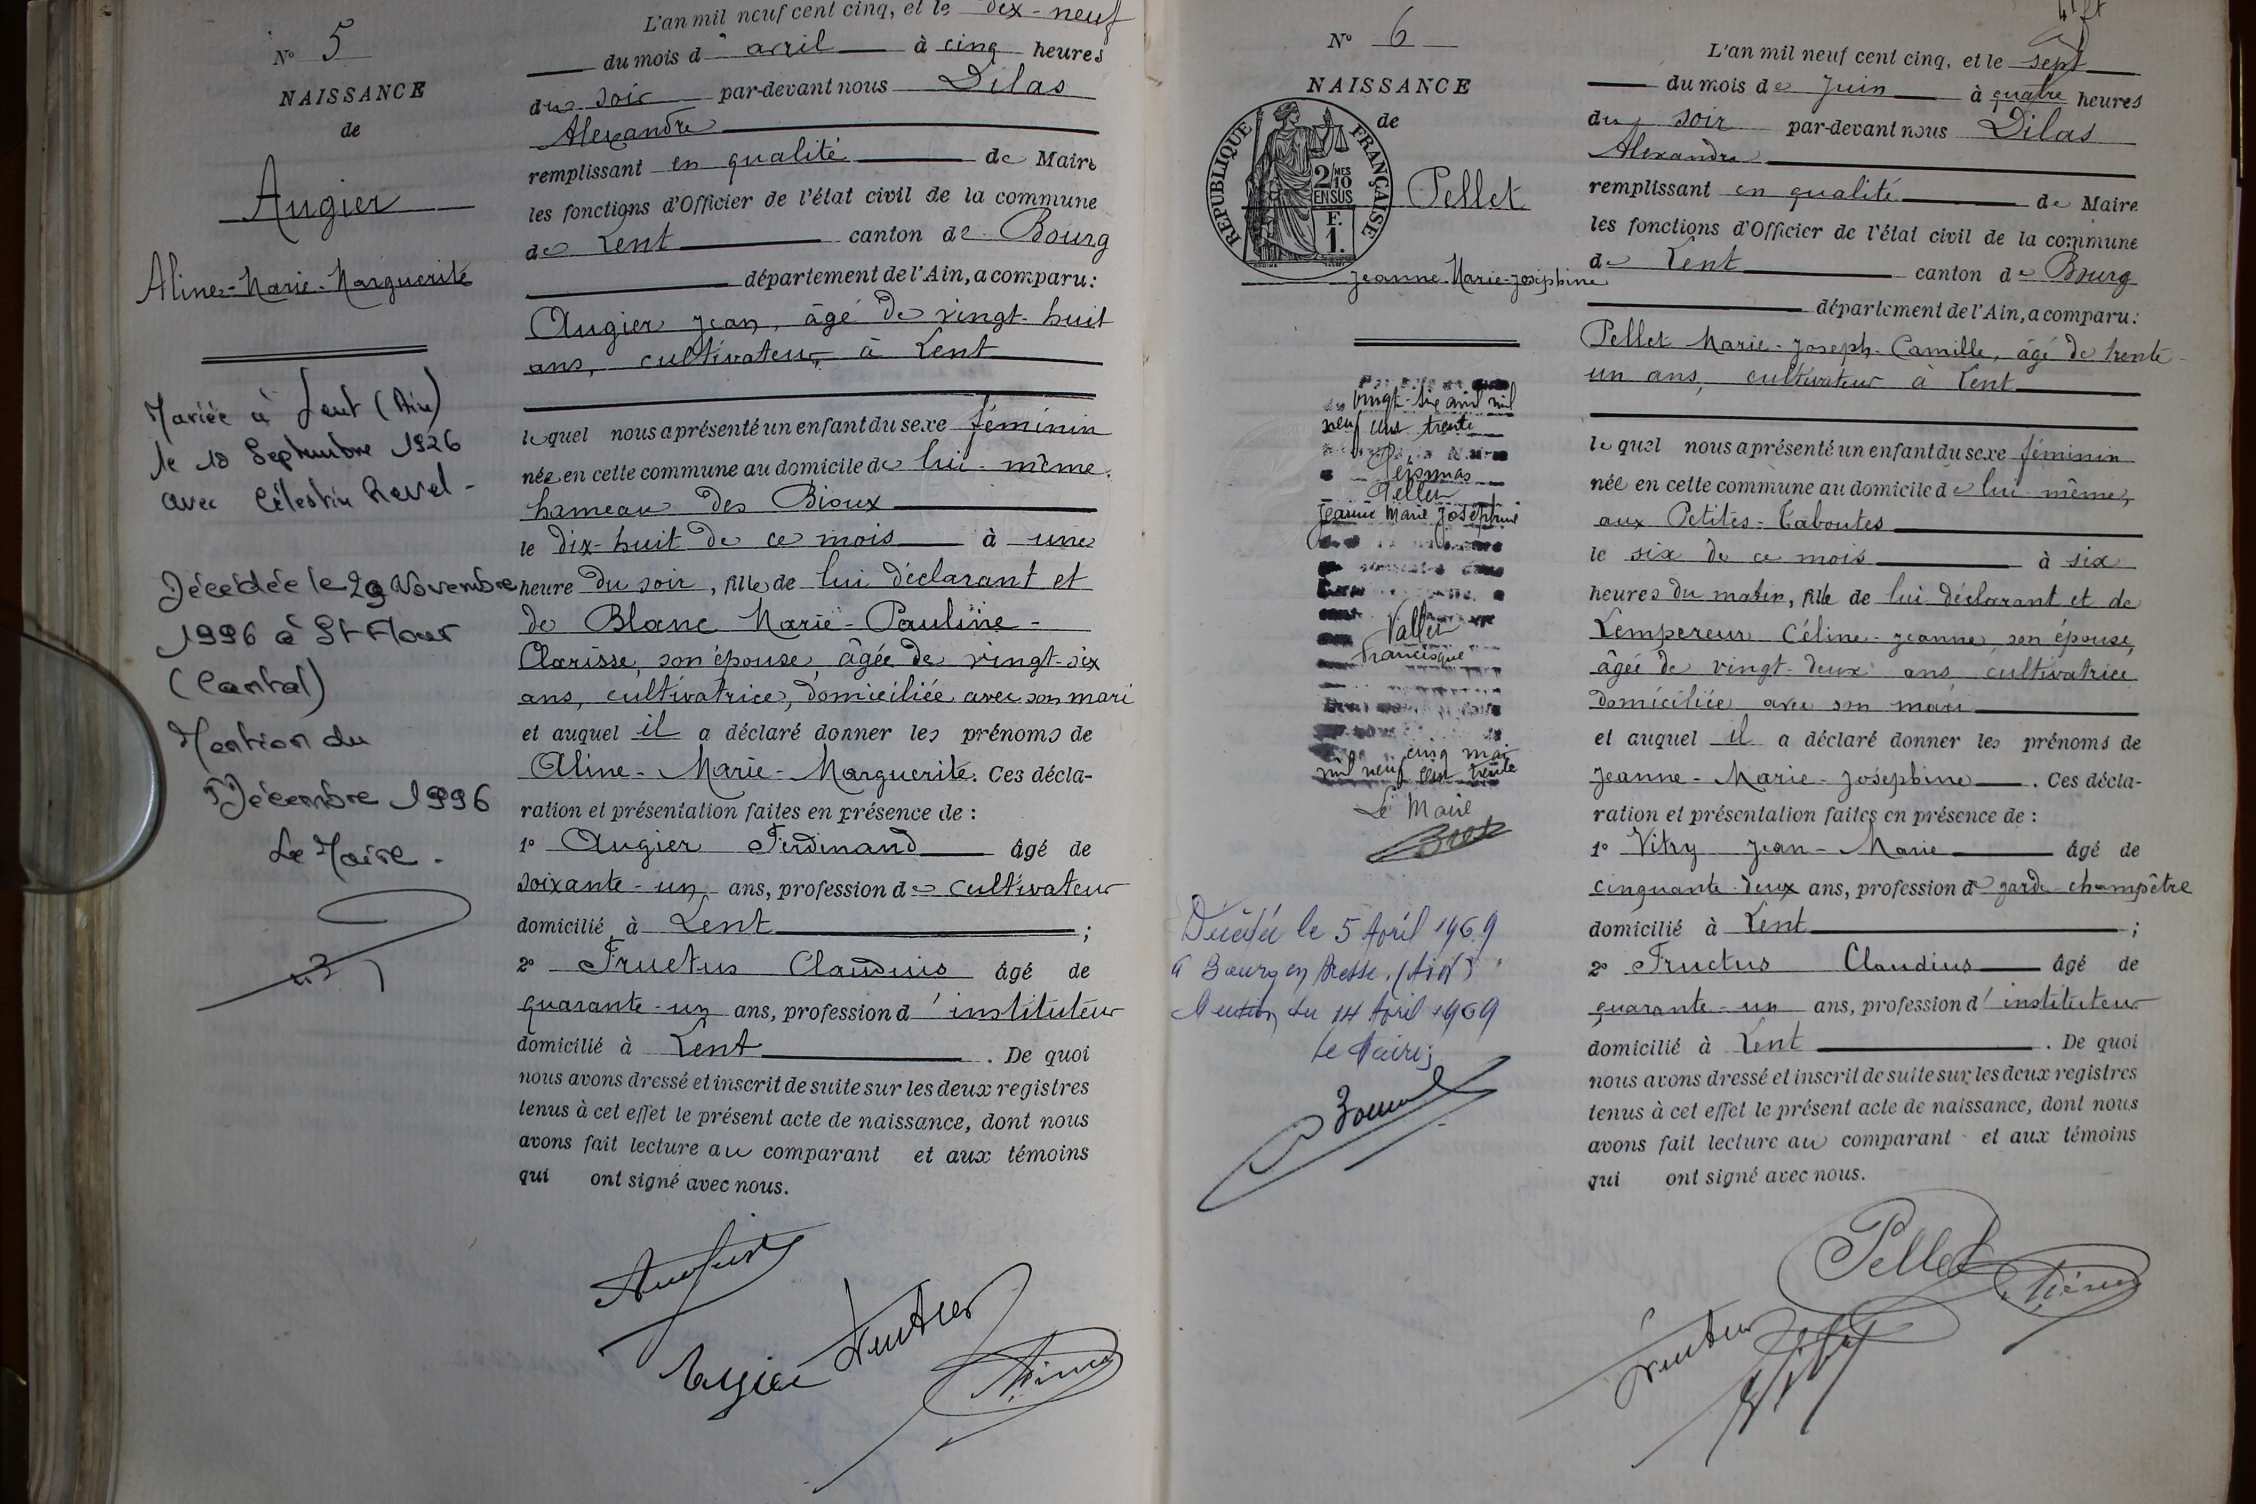 N° 5
NAISSANCE
de
Augier
Aline-Marie-Marguerite
Mariée à Lent (Ain)
le 18 Septembre 1926
avec Célestin Revel -
Décédée le 29 Novembre
1996 à St Flour
(Cantal)
Mention du
Décembre 1996
Le Maire.
L'an mil neuf cent cinq, et le dix-neuf
du mois d'avril à cinq heures
du soir par-devant nous Dilas
Alexandre
remplissant en qualité de Maire
les fonctions d'Officier de l'état civil de la commune
de Lent canton de Bourg
département de l'Ain, a comparu:
Augier Jean, âgé de vingt-huit
ans, cultivateur, à Lent
lequel nous a présenté un enfant du sexe féminin
née en cette commune au domicile de lui-même,
hameau des Bioux
le dix-huit de ce mois à une
heure du soir, fille de lui déclarant et
de Blanc Marie-Pauline-
Clarisse, son épouse, âgée de vingt-six
ans, cultivatrice, domiciliée avec son mari
et auquel il a déclaré donner les prénoms de
Aline-Marie-Marguerite. Ces décla-
ration et présentation faites en présence de :
1° Augier Ferdinand âgé de
soixante-un ans, profession de cultivateur
domicilié à Lent ;
2° Fructus Claudius âgé de
quarante-un ans, profession d'instituteur
domicilié à Lent . De quoi
nous avons dressé et inscrit de suite sur les deux registres
tenus à cet effet le présent acte de naissance, dont nous
avons fait lecture au comparant et aux témoins
qui ont signé avec nous.
Augier Fructus
N° 6
NAISSANCE
de
REPUBLIQUE FRANÇAISE
2/10 MES
EN SUS
F.
1.
Pellet
Jeanne-Marie-Joséphine
vingt-six avril mil
neuf cent trente
Pellet
Jeanne Marie Joséphine
Vallet
Francisque
cinq mai
mil neuf cent trente
Le Maire
Décédée le 5 Avril 1969
à Bourg en Bresse (Ain)
Mention du 14 Avril 1969
Le Maire;
L'an mil neuf cent cinq, et le sept
du mois de Juin à quatre heures
du soir par-devant nous Dilas
Alexandre
remplissant en qualité de Maire
les fonctions d'Officier de l'état civil de la commune
de Lent canton de Bourg
département de l'Ain, a comparu:
Pellet Marie-Joseph-Camille, âgé de trente-
un ans, cultivateur à Lent
lequel nous a présenté un enfant du sexe féminin
née en cette commune au domicile de lui même,
aux Petites-Caboutes
le six de ce mois à six
heures du matin, fille de lui déclarant et de
Lempereur Céline-Jeanne, son épouse,
âgée de vingt-deux ans, cultivatrice
domiciliée avec son mari
et auquel il a déclaré donner les prénoms de
Jeanne-Marie-Joséphine . Ces décla-
ration et présentation faites en présence de :
1° Vitry Jean-Marie âgé de
cinquante-deux ans, profession de garde-champêtre
domicilié à Lent ;
2° Fructus Claudius âgé de
quarante-un ans, profession d'instituteur
domicilié à Lent . De quoi
nous avons dressé et inscrit de suite sur les deux registres
tenus à cet effet le présent acte de naissance, dont nous
avons fait lecture au comparant et aux témoins
qui ont signé avec nous.
Pellet
Fructus
Vitry